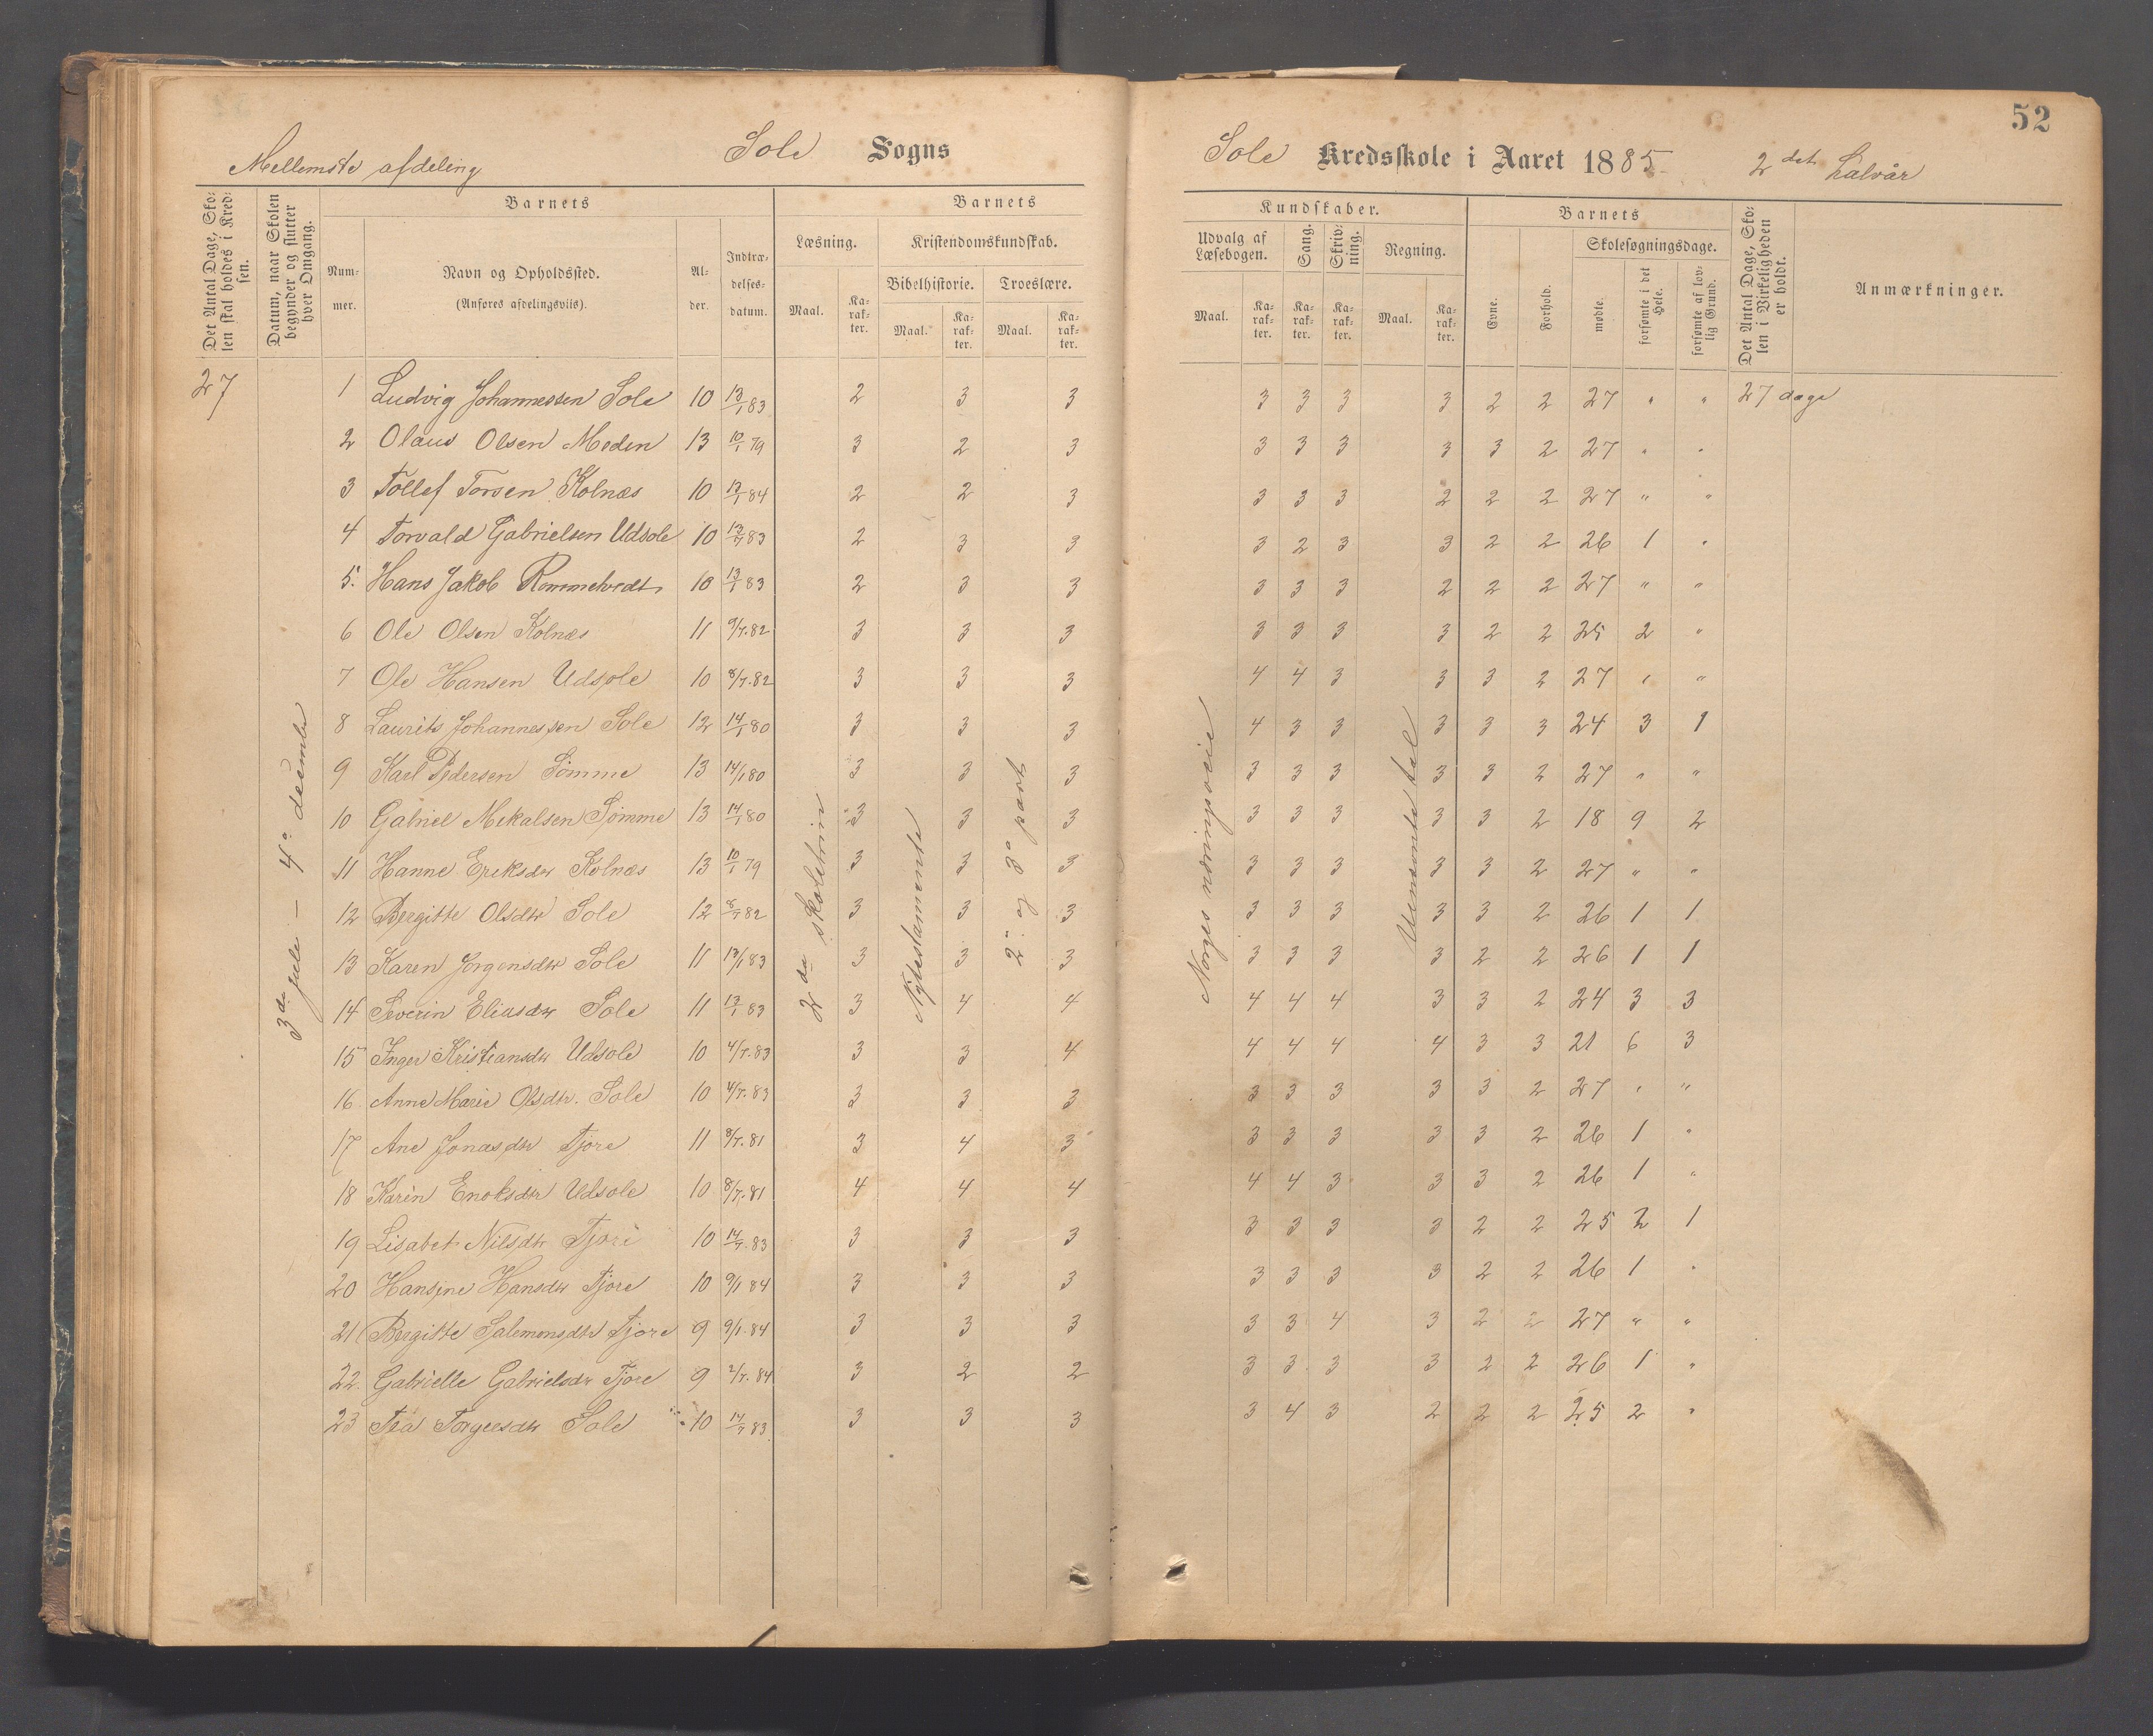 52
Mellemste afdeling Sole Sogns
Sole Kredsskole i Aaret 1885. 2det halvår
Det Antal Dage, Skolen skal holdes i Kredsen.
Datum, naar Skolen begynder og slutter hver Omgang.
Barnets
Nummer.
Navn og Opholdssted.
(Anføres afdelingsviis).
Alder.
Indtrædelsesdatum.
Barnets
Læsning. Maal. Karakter.
Kristendomskundskab.
Bibelhistorie. Maal. Karakter.
Troeslære. Maal. Karakter.
Kundskaber.
Udvalg af Læsebogen. Maal. Karakter.
Sang. Karakter.
Skrivning. Karakter.
Regning. Maal. Karakter.
Barnets
Evne.
Forhold.
Skolesøgningsdage.
mødte.
forsømte i det Hele.
forsømte af lovlig Grund.
Det Antal Dage, Skolen i Virkeligheden er holdt.
Anmærkninger.
27
3da jule – 4o decembr
2da skoletrin
Nytestamente
2o og 3o part
Norges næringsveie
1 Ludvig Johannessen Sole 10 13/1 83 2 3 3 3 3 3 3 2 2 27 " " 27 dage
2 Olaus Olsen Meden 13 10/1 79 3 2 3 3 3 3 3 3 2 27 " "
3 Tollef Torsen Kolnæs 10 13/1 84 2 2 3 3 3 3 2 2 2 27 " "
4 Torvald Gabrielsen Udsole 10 13/7 83 2 3 3 3 2 3 3 2 2 26 1 "
5. Hans Jakob 10 13/1 83 2 3 3 3 3 3 2 2 2 27 " "
6 Ole Olsen Kolnæs 11 9/7. 82 3 3 3 3 3 3 3 2 2 25 2 "
7 Ole Hansen Udsole 10 8/7. 82 3 3 3 4 4 3 3 3 2 27 " "
8 Laurits Johannessen Sole 12 14/1 80 3 3 3 4 3 3 3 3 3 24 3 1
9 Karl Pedersen Sömme 13 14/1 80 3 3 3 3 3 3 3 3 2 27 " "
10 Gabriel Mikalsen Sömme 13 14/1 80 3 3 3 3 3 3 3 3 2 18 9 2
11 Hanne Eriksdtr Kolnæs 13 10/1 79 3 3 3 3 3 3 3 3 2 27 " "
12 Bergitte Olsdtr Sole 12 8/7 82 3 3 3 3 3 3 3 3 2 26 1 1
13 Karen Jorgensdtr Sole 11 13/1 83 3 3 3 3 3 3 3 2 2 26 1 1
14 Severin Eliasdtr Sole 11 13/1 83 3 4 4 4 4 4 3 3 2 24 3 3
15 Inger Kristiansdtr Udsole 10 4/7. 83 3 3 4 4 4 4 4 3 3 21 6 3
16 Anne Marie Olsdtr. Sole 10 4/7. 83 3 3 3 3 3 3 3 3 2 27 " "
17 Ane Jonasdtr Tjore 11 8/7. 81 3 4 3 3 3 3 3 3 2 26 1 "
18 Karin Enoksdtr Udsole 10 8/7. 81 4 4 4 4 4 3 3 3 2 26 1 "
19 Lisabet Nilsdtr Tjore 10 14/7. 83 3 3 3 3 3 3 3 2 2 25 2 1
20 Hansine Hansdtr Tjore 10 9/1 84 3 3 3 3 3 3 3 2 2 26 1 "
21 Bergitte Salemonsdtr Tjore 9 9/1. 84 3 3 3 3 3 4 3 2 2 27 " "
22. Gabrielle Gabrielsdtr Tjore 9 2/7. 84 3 2 2 3 3 3 3 2 2 26 1 "
23 Tea Torgersdtr Sole 10 14/7 83 3 3 3 3 4 3 2 2 2 25 2 "